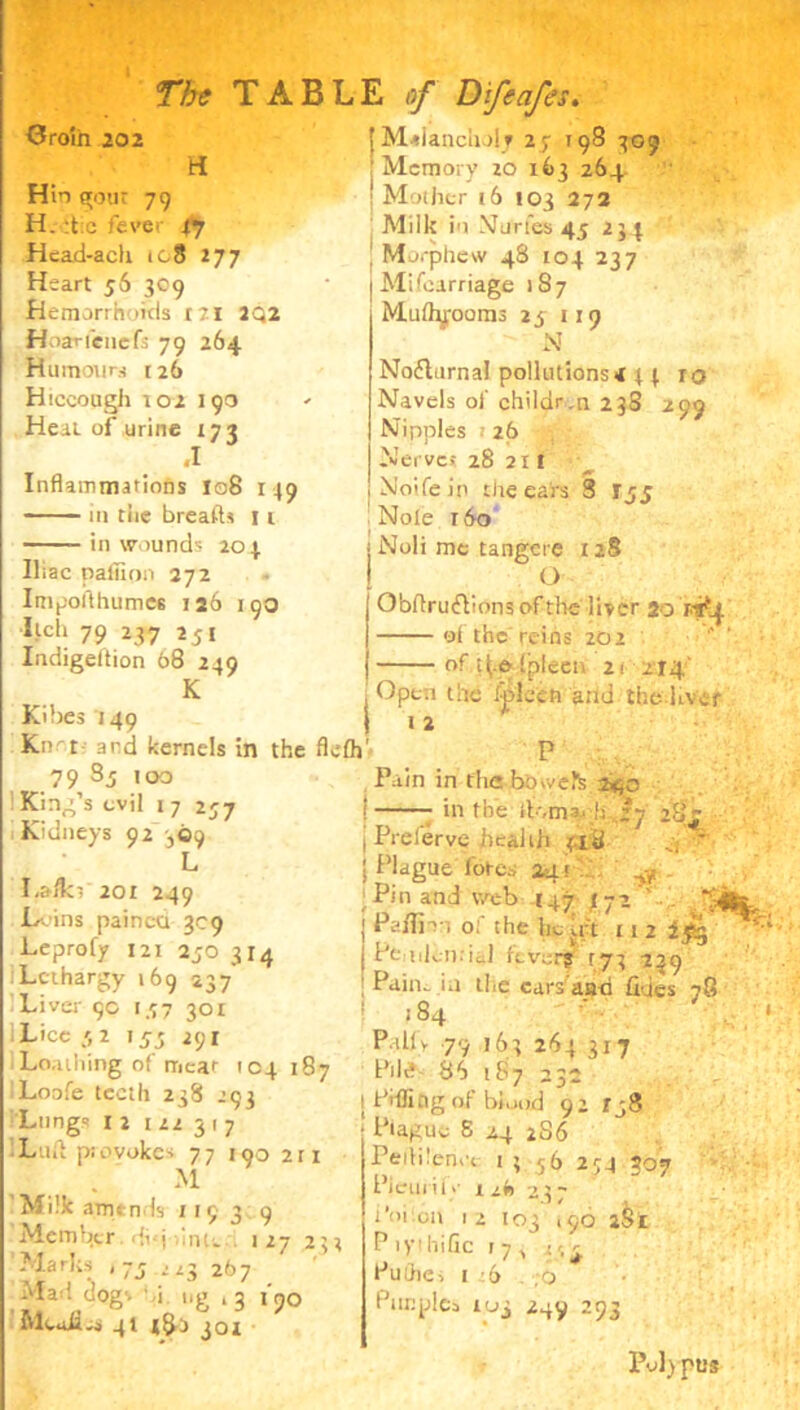 The TABLE of Diſeaſes.
Groin 202
H
Hip gout 79
Hectic fever 47
Head-ach 108 277
Heart 56 309
Hemorrhoids 121 292
Hoarſeneſs 79 264
Humours 126
Hiccough 102 190
Heat of urine 173
I
Inflammations 108 149
—— in the breaſts 11
—— in wounds 204
Iliac paſſion 272
Impoſthumes 126 190
Itch 79 237 251
Indigeſtion 68 249
K
Kibes 149
Knots and kernels in the fleſh
79 85 100
King's evil 17 257
Kidneys 92 309
L
Laſks 201 249
Loins pained 309
Leproſy 121 250 314
Lethargy 169 237
Liver 90 157 301
Lice 52 155 291
Loathing of meat 104 187
Looſe teeth 238 293
Lungs 12 122 317
Luſt provokes 77 190 211
M
Milk amends 119 309
Member disjointed 127 233
Marks 175 223 267
Mad dogs 13 190
Meaſles 41 180 301
Melancholy 25 198 309
Memory 20 163 264
Mother 16 103 272
Milk in Nurſes 45 234
Morphew 48 104 237
Miſcarriage 187
Muſhrooms 25 119
N
Nocturnal pollutions
Navels of children 238 299
Nipples 126
Nerves 28 211
Noiſe in the ears 8 155
Noſe 160
Noli me tangere 128
O
Obſtructions of the liver 20
—— of the reins 202
—— of the ſpleen 21 214
Open the ſpleen and the liver
12
P
Pain in the bowels 240
—— in the ſtomach 27
Preſerve health
Plague ſores 241
Pin and web 147 172
Paſſion of the heart 112
Peſtilential fevers 173 239
Pains in the ears and ſides 78
184
Palſy 79 163 264 317
Pile 86 187 232
Piſſing of blood 92 158
Plague 8 24 286
Peſtilence 13 56 254 307
Pleuriſy 126 237
Poiſon 12 103 190 281
P
Puſhes
Pimples 103 249 293
Polypus